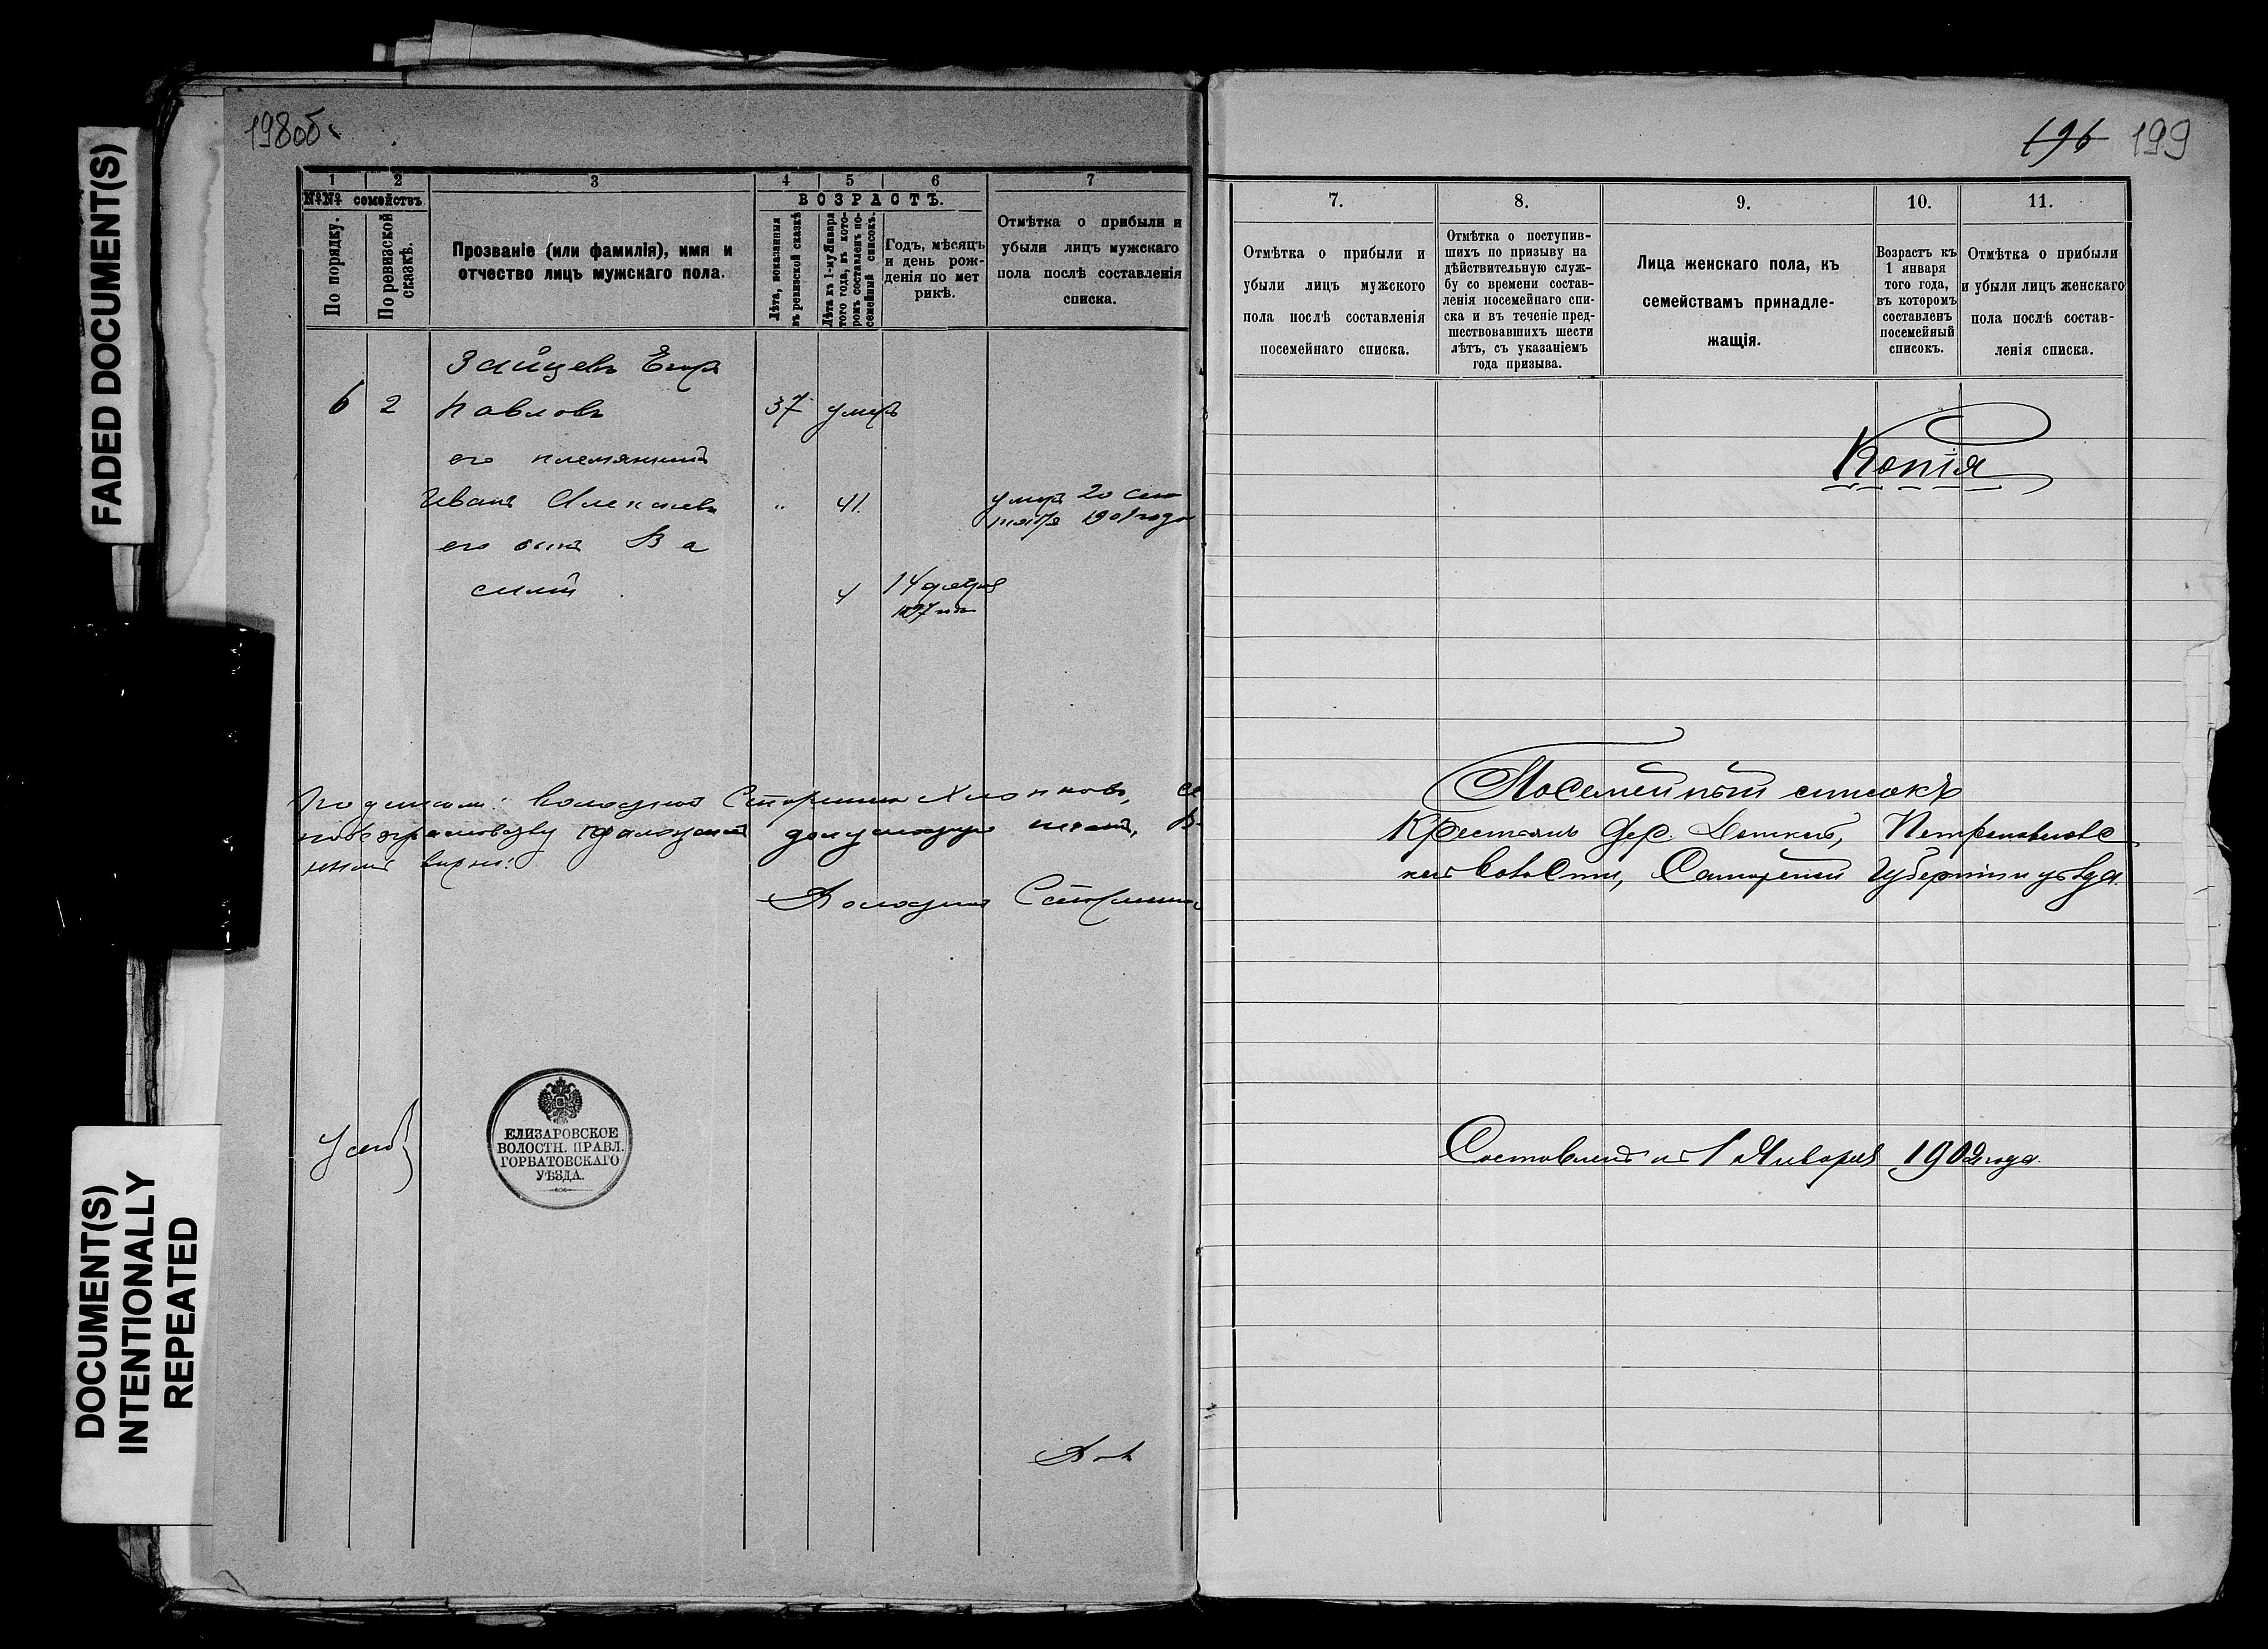 FADED DOCUMENT(S)
DOCUMENT(S)
INTENTIONALLY
REPEATED
198об.
1 2 3 4 5 6 7
№№ семействъ
ВОЗРАСТЪ.
По порядку.
По ревизской
сказкѣ.
Прозваніе (или фамилія), имя и
отчество лицъ мужскаго пола.
Лѣта, показанныя
въ ревизской сказкѣ
Лѣта къ 1-му Января
того года, въ кото-
ромъ составленъ по-
семейный списокъ.
Годъ, мѣсяцъ
и день рож-
денія по мет
рикѣ.
Отмѣтка о прибыли и
убыли лицъ мужскаго
пола послѣ составленія
списка.
Зайцевъ Егоръ
6 2 Павловъ 37 умеръ
его племянникъ
Иванъ Алексѣевъ " 41. умеръ 20 Сен
тября 1901 года
его сынъ Ва
силій 4 14 декабря
1897 года
Волостной Старшина
ЕЛИЗАРОВСКОЕ
ВОЛОСТН. ПРАВЛ.
ГОРБАТОВСКАГО
УѢЗДА.
196 199
7. 8. 9. 10. 11.
Отмѣтка о прибыли и
убыли лицъ мужского
пола послѣ составленія
посемейнаго списка.
Отмѣтка о поступив-
шихъ по призыву на
дѣйствительную служ-
бу со времени состав-
ленія посемейнаго спи-
ска и въ теченіе пред-
шествовавшихъ шести
лѣтъ, съ указаніемъ
года призыва.
Лица женскаго пола, къ
семействамъ принадле-
жащія.
Возрастъ къ
1 января
того года,
въ которомъ
составленъ
посемейный
списокъ.
Отмѣтка о прибыли
и убыли лицъ женскаго
пола послѣ состав-
ленія списка.
Копія
Посемейный списокъ
Крестьянъ дер. Петропавловс
кой Волости, Самарской Губерніи и уѣзда.
Составленъ на 1 Января 1902 года.